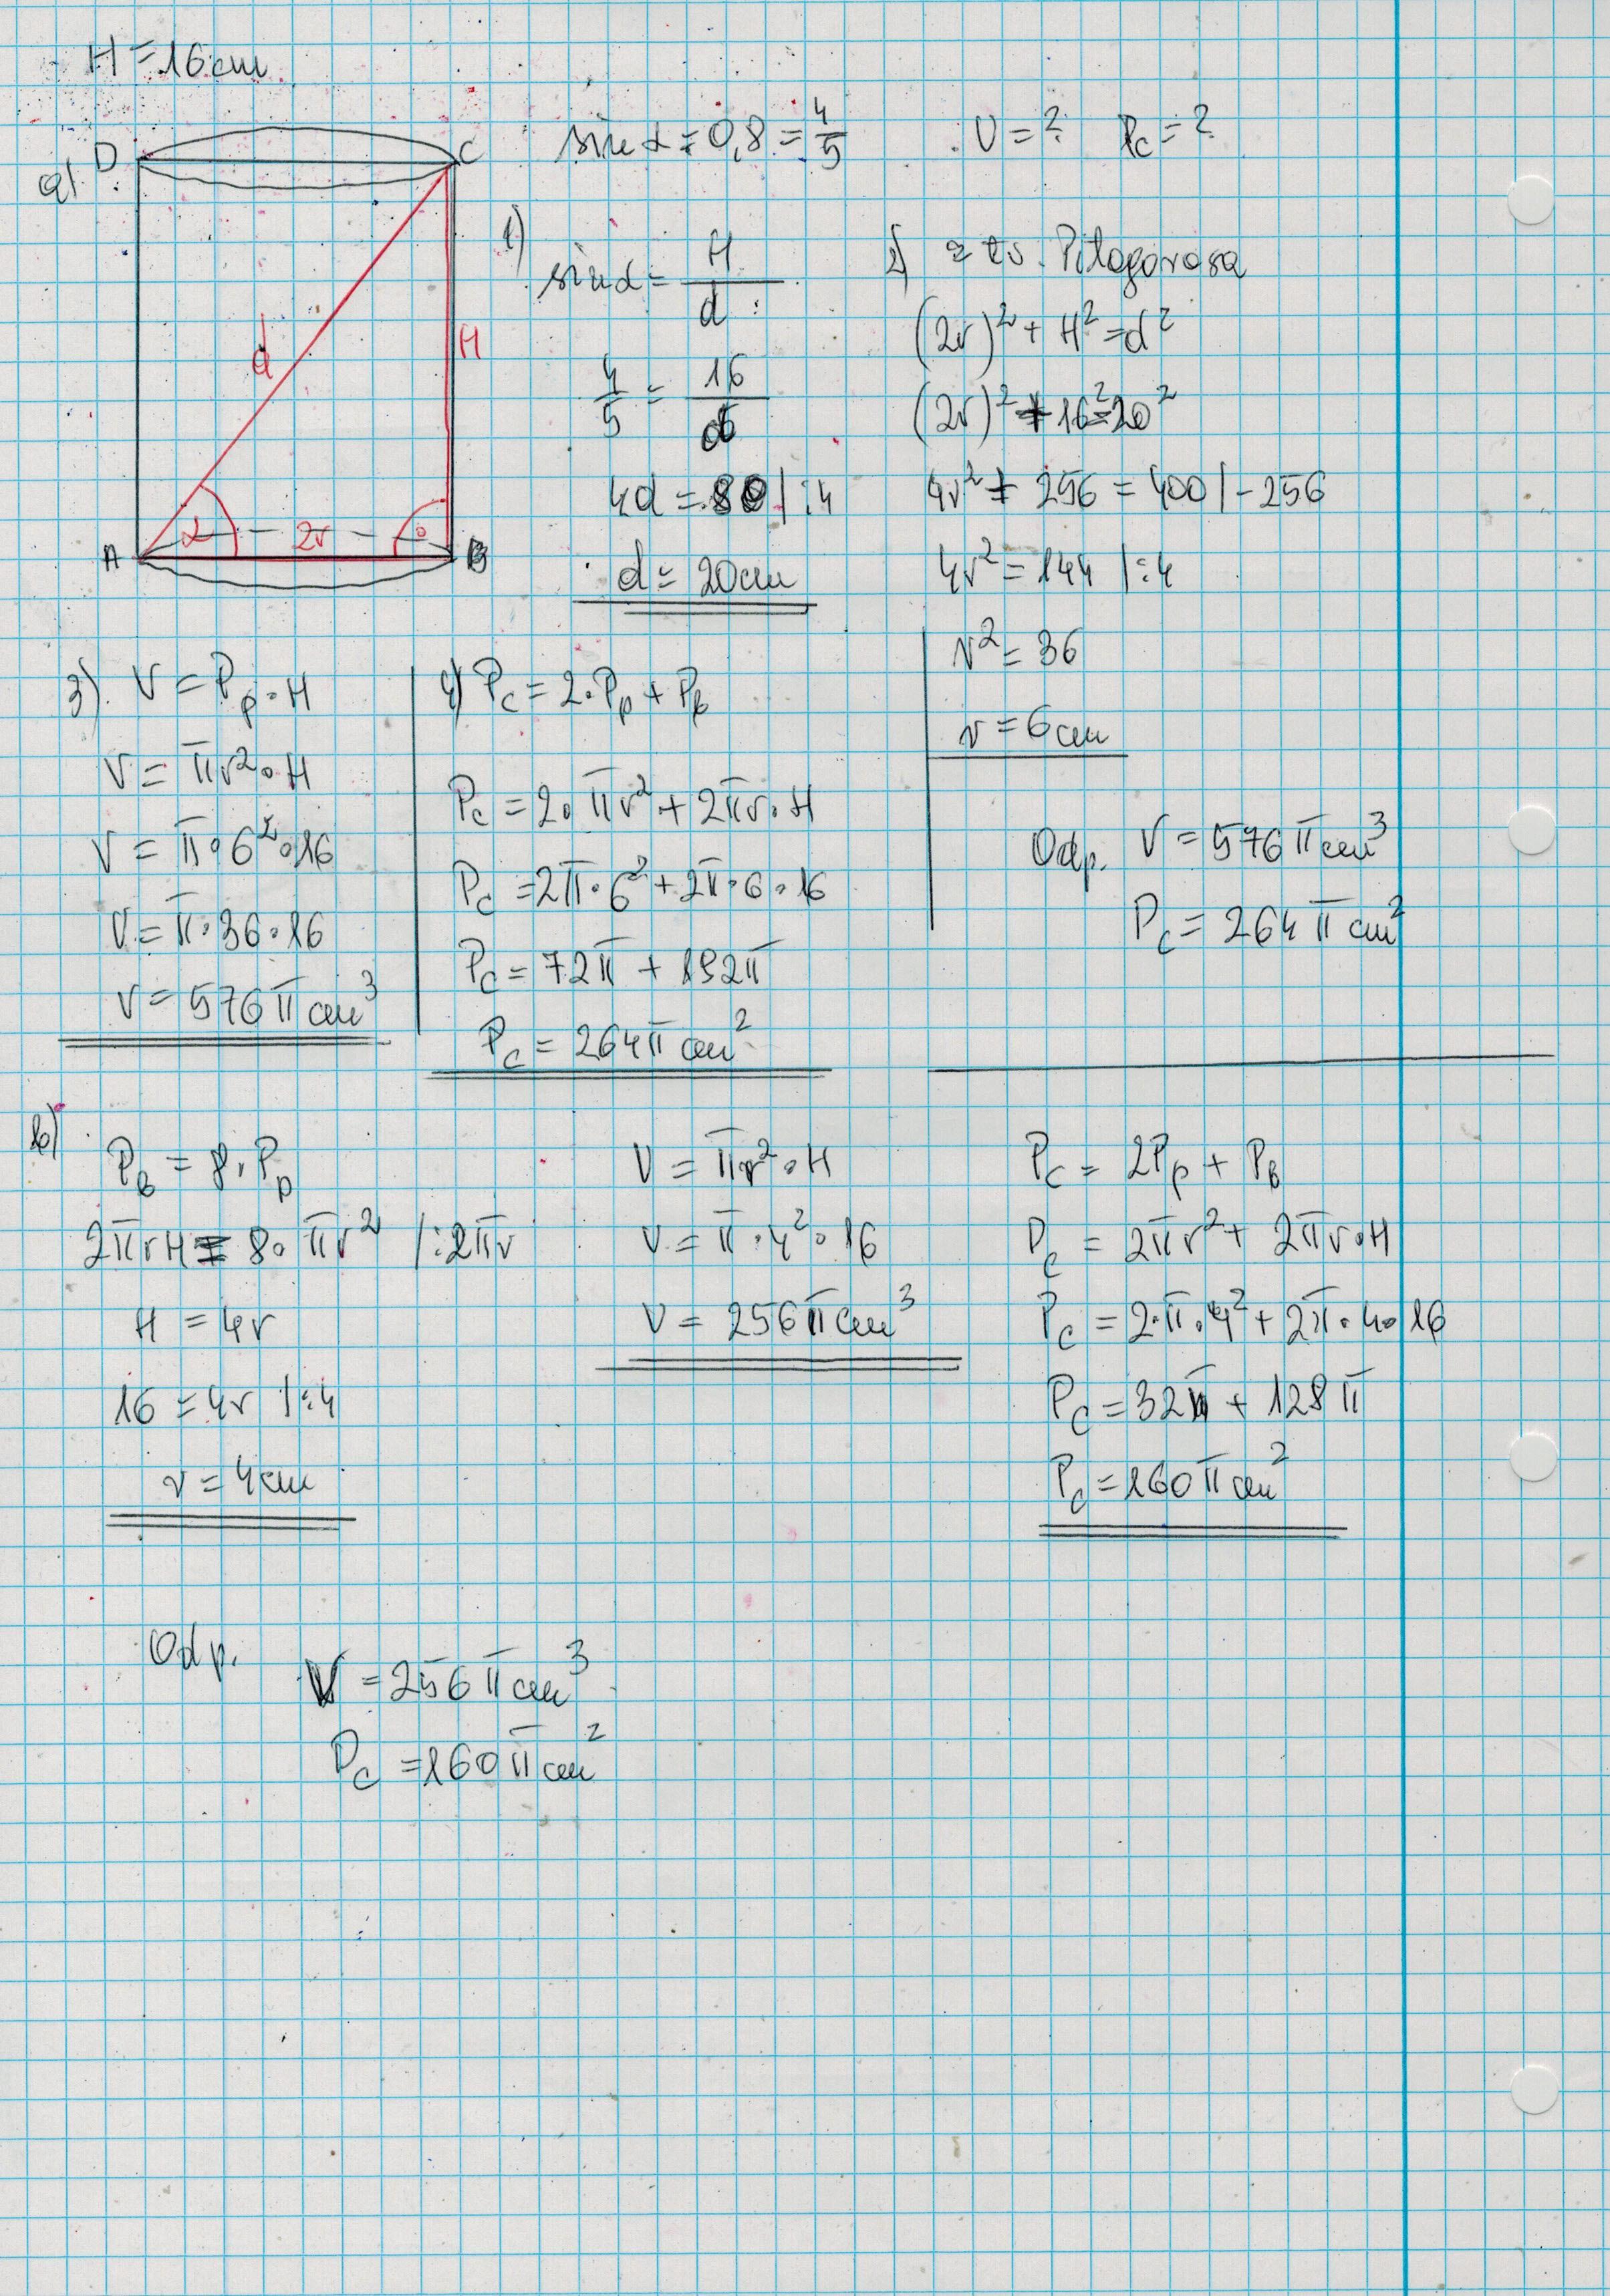 H = 16cm
a)
D
C
d
H
α
2r
A
B
sin α = 0,8 = 4/5
V = ? Pc = ?
1)
sin α = H/d
4/5 = 16/d
4d = 80 /:4
d = 20cm
2) z tw. Pitagorasa
(2r)² + H² = d²
(2r)² + 16² = 20²
4r² + 256 = 400 /-256
4r² = 144 /:4
r² = 36
r = 6cm
3) V = Pp · H
V = πr² · H
V = π · 6² · 16
V = π · 36 · 16
V = 576π cm³
4) Pc = 2 · Pp + Pb
Pc = 2 · πr² + 2πr · H
Pc = 2π · 6² + 2π · 6 · 16
Pc = 72π + 192π
Pc = 264π cm²
Odp. V = 576π cm³
Pc = 264π cm²
b)
PB = 8 · Pp
2πrH = 8 · πr² /:2πr
H = 4r
16 = 4r /:4
r = 4cm
V = πr² · H
V = π · 4² · 16
V = 256π cm³
Pc = 2Pp + PB
Pc = 2πr² + 2πr · H
Pc = 2 · π · 4² + 2π · 4 · 16
Pc = 32π + 128π
Pc = 160π cm²
Odp.
V = 256π cm³
Pc = 160π cm²